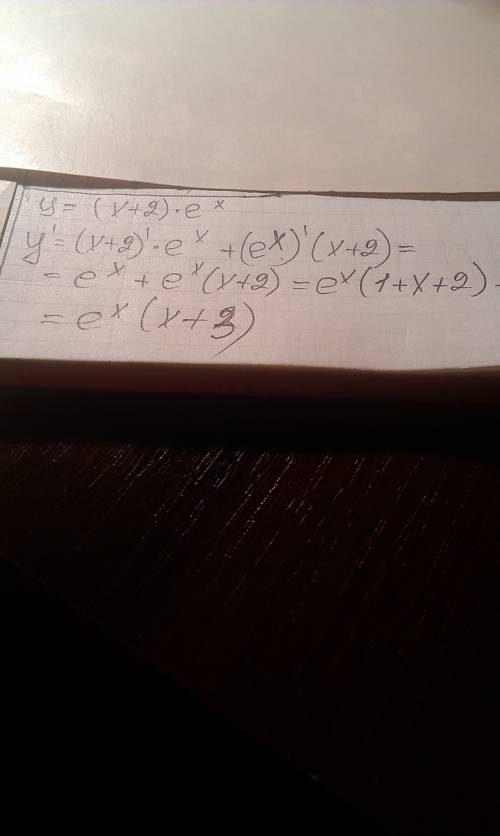 y = (x+2)·e^x
y' = (x+2)'·e^x + (e^x)'(x+2) =
= e^x + e^x(x+2) = e^x(1+x+2) -
= e^x(x+3)